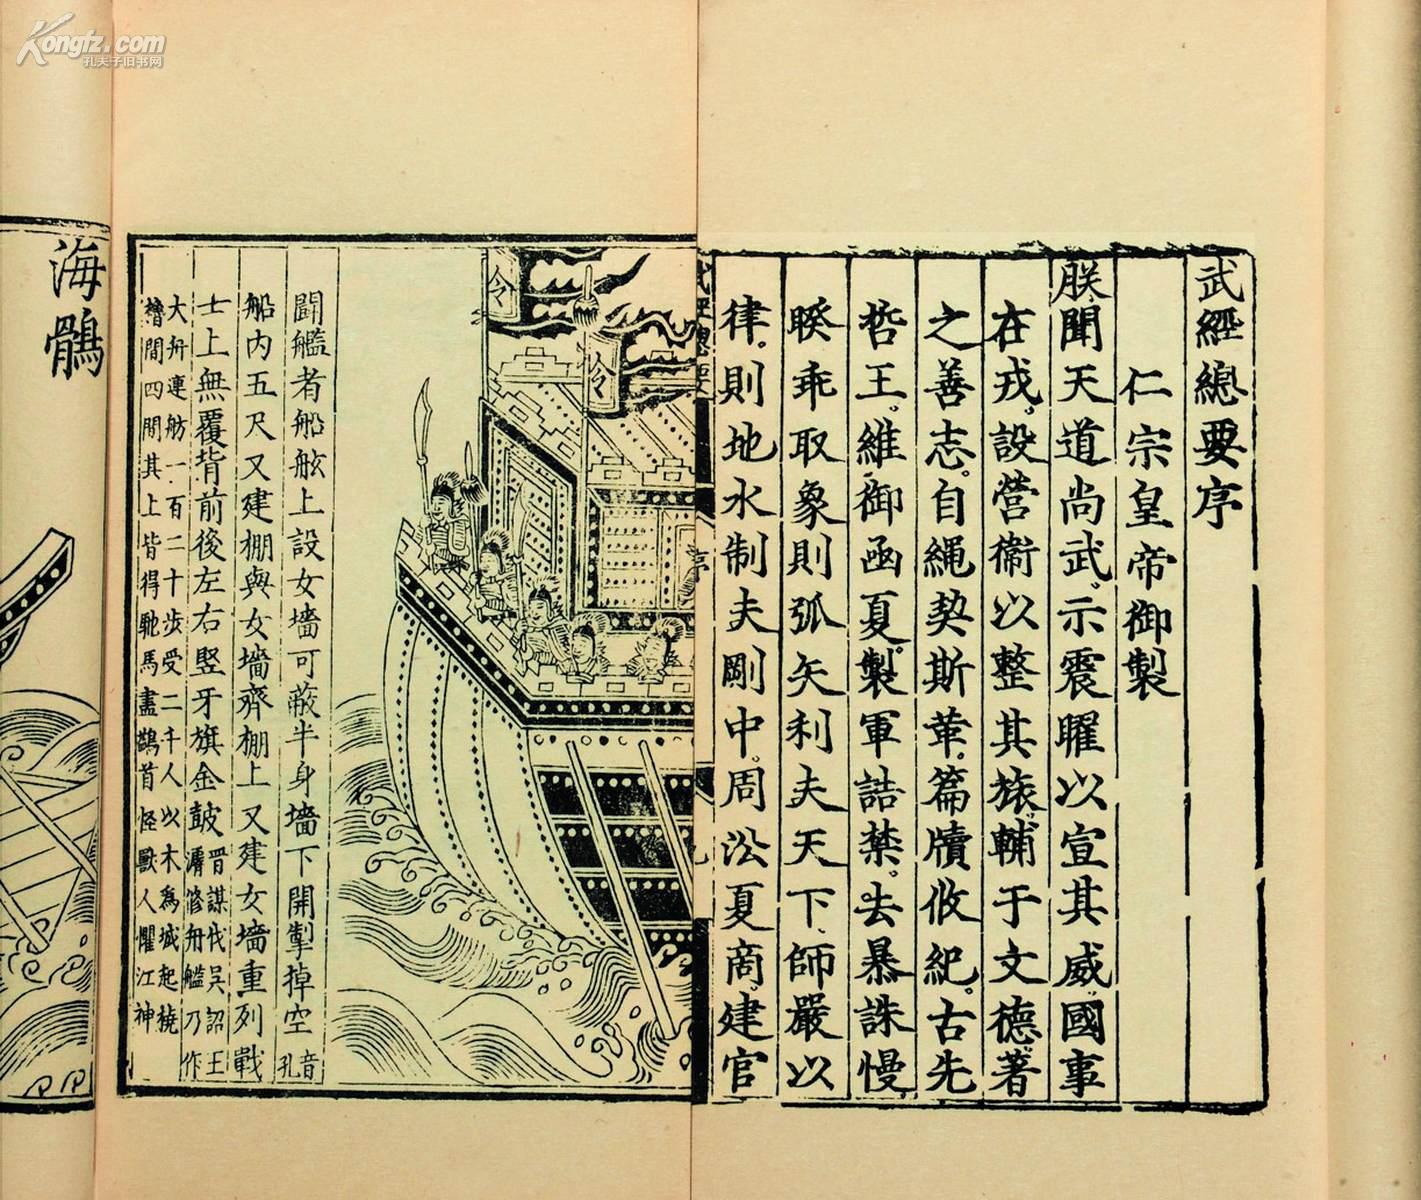 武經總要序
仁宗皇帝御製
朕聞天道尚武。示震曜以宣其威。國事
在戎。設營衛以整其旅。輔于文德。著
之善志。自繩契斯革。篇牘攸紀。古先
哲王。維御函夏。製軍詰禁。去暴誅慢。
睽乖取象則弧矢利夫天下。師嚴以
律。則地水制夫剛中。周㳂夏商。建官
武經總要
序
令
令
鬬艦者船舷上設女墻可蔽半身墻下開掣掉空音孔
船內五尺又建棚與女墻齊棚上又建女墻重列戰
士上無覆背前後左右竪牙旗金鼓晉謀伐吳詔王
濬修舟艦乃作
大舟連舫一百二十步受二千人以木爲城起橈
櫓間四開其上皆得馳馬畫鷁首怪獸人懼江神
海鶻
Kongfz.com
孔夫子旧书网